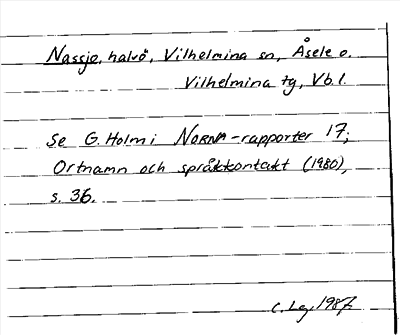 Nassjo, halvö, Vilhelmina sn, Åsele o.
Vilhelmina tg, Vb.l.
Se G. Holm i NORNA-rapporter 17;
Ortnamn och språkkontakt (1980),
s. 36.
C. Lg. 1987.